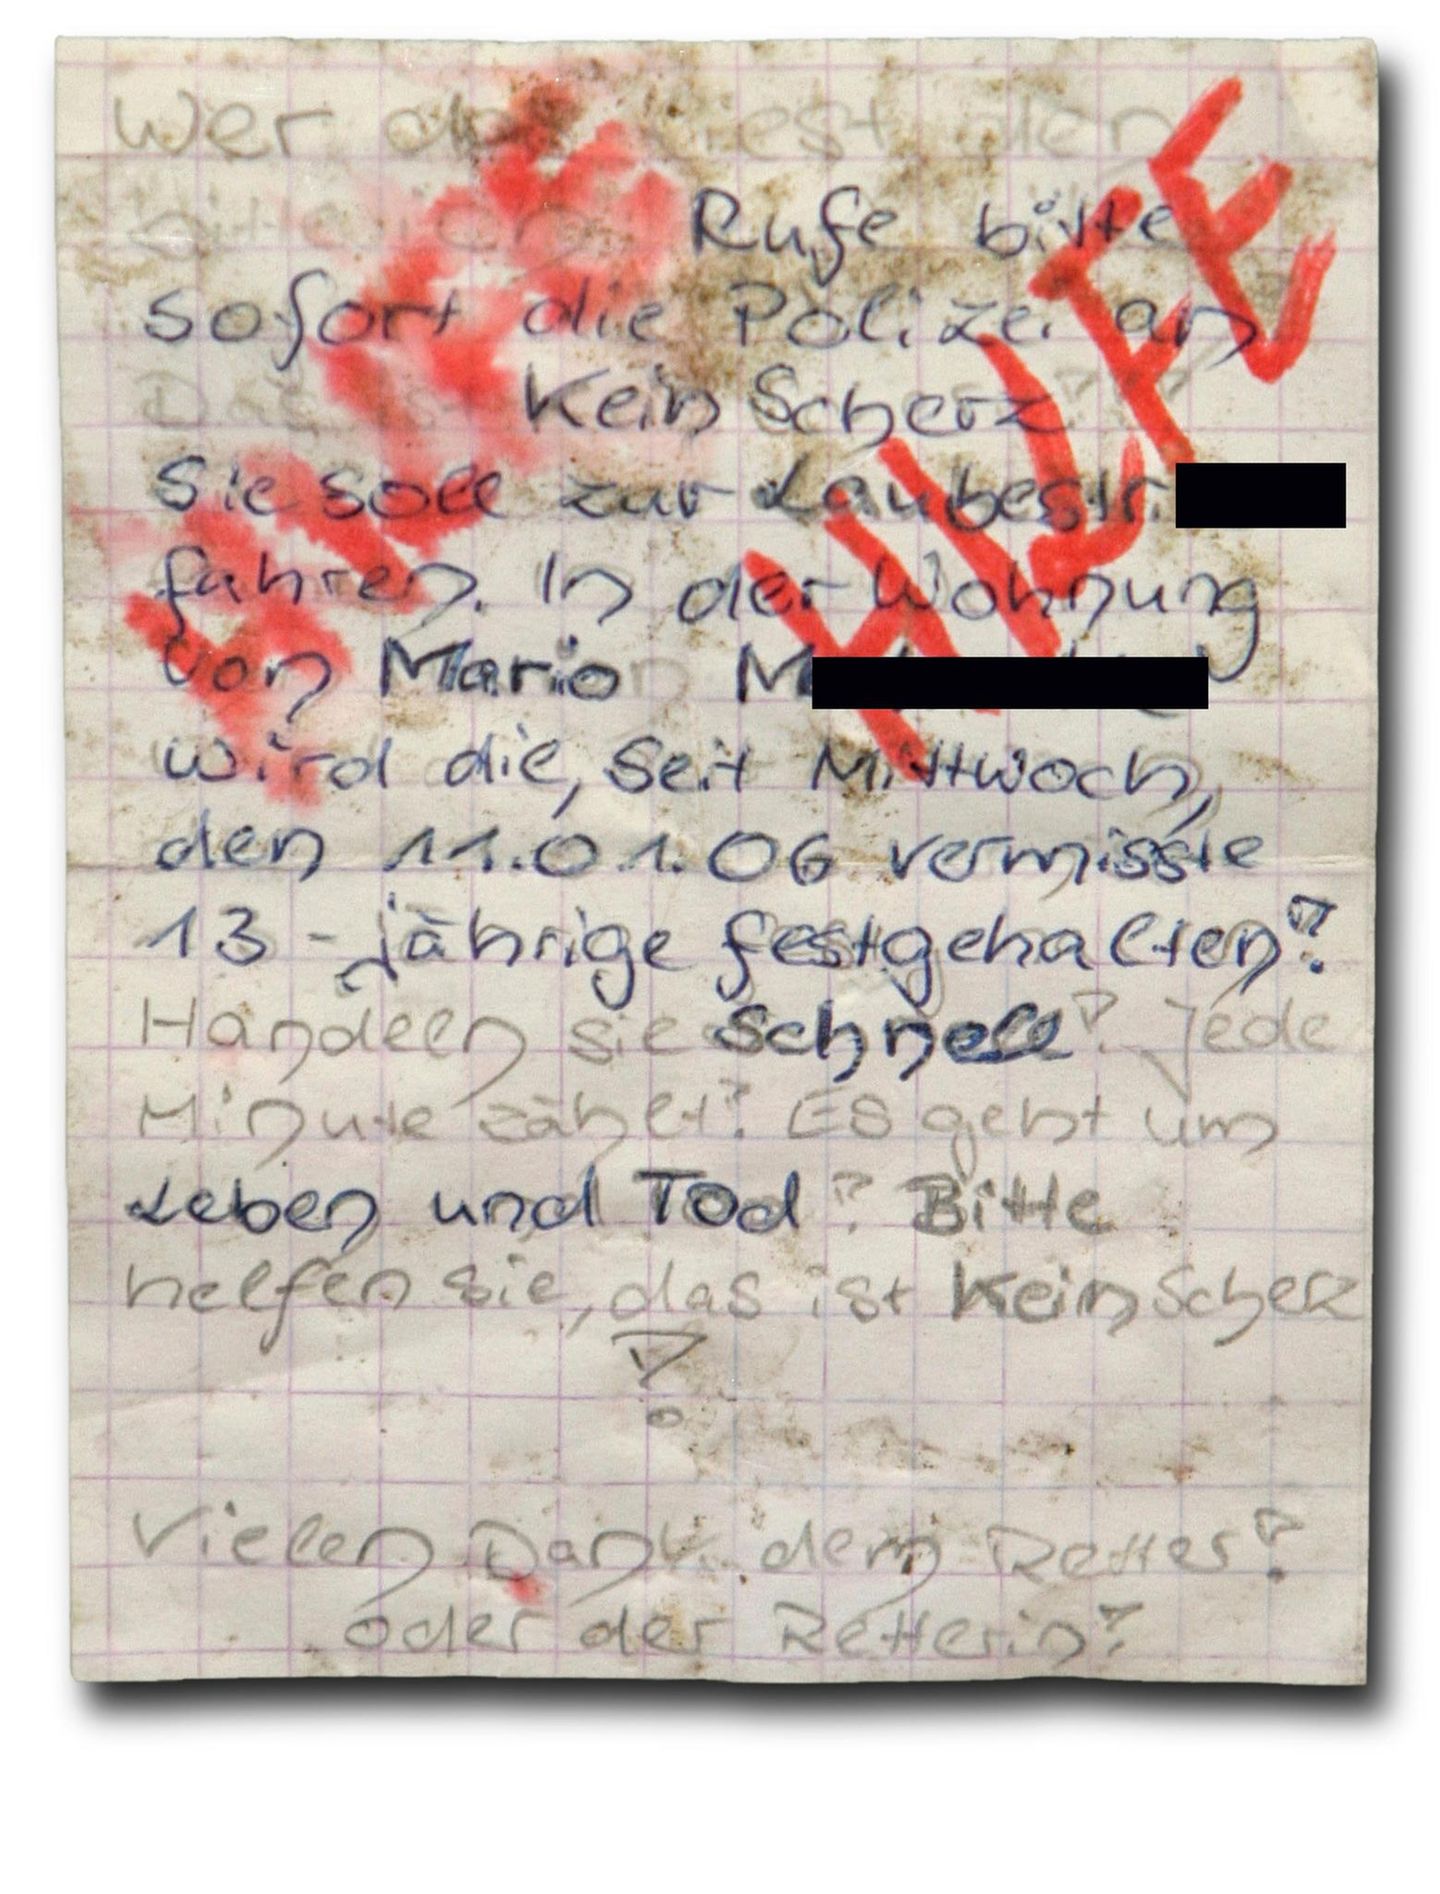 Wer das liest den
Rufe bitte
sofort die Polizei an
Das ist Kein Scherz!!!
Sie soll zur Laubestr.
fahren. In der Wohnung
von Mario M
wird die, seit Mittwoch,
den 11.01.06 vermisste
13-jährige festgehalten!
Handeln sie schnell! Jede
Minute zählt! Es geht um
Leben und Tod! Bitte
helfen sie, das ist kein Scherz
!
Vielen Dank dem Retter!
oder der Retterin!
HILFE
HILFE